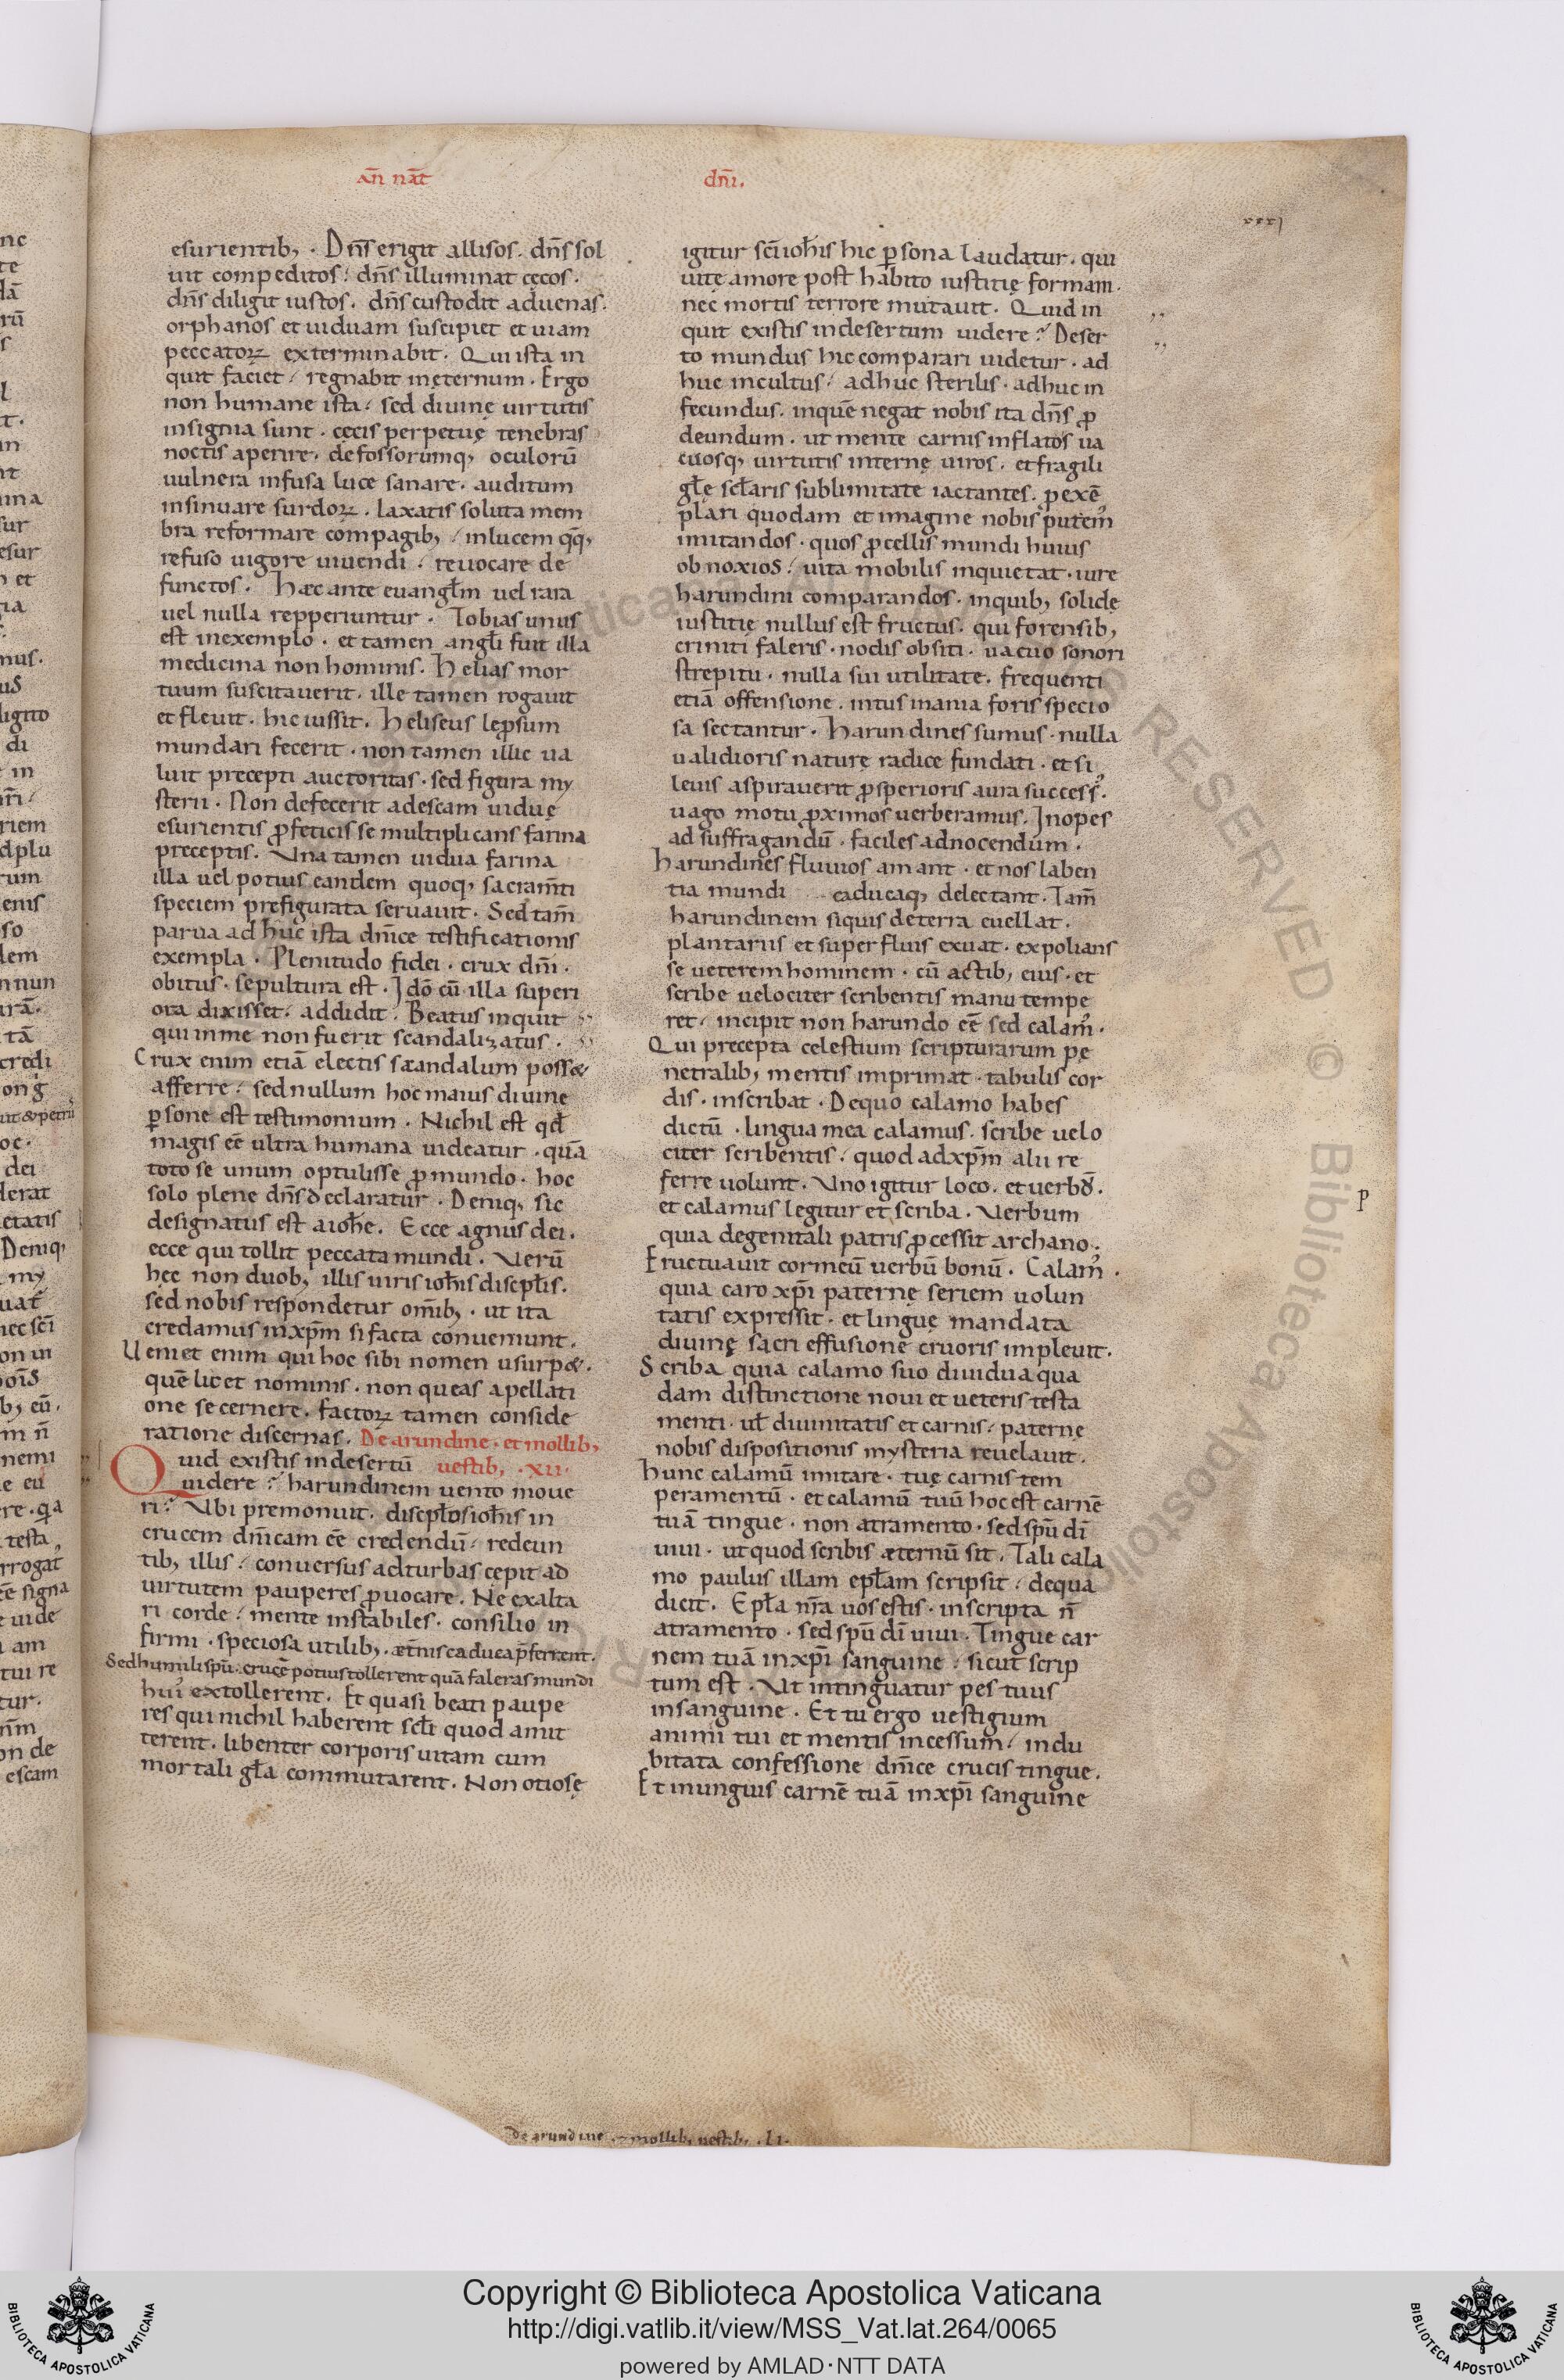 an̄ nāt dn̄i.
esurientib; . Dn̄s erigit allisos . dn̄s sol
uit compeditos : dn̄s illuminat cęcos .
dn̄s diligit iustos . dn̄s custodit aduenas .
orphanos et uiduam suscipiet et uiam
peccatoꝝ exterminabit . Qui ista in
quit faciet / regnabit inęternum . Ergo
non humane ista / sed diuinę uirtutis
insignia sunt . cęcis perpetuę tenebras
noctis aperire . defossorumq; oculorū
uulnera infusa luce sanare . auditum
insinuare surdoꝝ . laxatis soluta mem
bra reformare compagib; / inlucem qq̄;
refuso uigore uiuendi / reuocare de
functos . Hæc ante euangl̄m uel rara
uel nulla repperiuntur . Tobias unus
est inexemplo . et tamen angl̄i fuit illa
medicina non hominis . Helias mor
tuum suscitauerit . ille tamen rogauit
et fleuit . hic iussit . Heliseus lep̱sum
mundari fecerit . non tamen illic ua
luit precepti auctoritas . sed figura my
sterii . Non defecerit adescam uiduę
esurientis ꝓfeticis se multiplicans farina
preceptis . Vna tamen uidua farina
illa uel potius eandem quoq; sacram̄ti
speciem prefigurata seruauit . Sed tam̄
parua ad huc ista dn̄ice testificationis
exempla . Plenitudo fidei . crux dn̄i .
obitus . sepultura est . Idō cū illa superi
ora dixisset . addidit . Beatus inquit
qui inme non fuerit scandalizatus .
Crux enim etiā electis scandalum posse&
afferre : sed nullum hoc maius diuine
ꝑsone est testimonium . Nichil est qd̄
magis eē ultra humana uideatur . quā
toto se unum optulisse ꝓ mundo . hoc
solo plene dn̄s declaratur . Deniq; sic
designatus est aioħe . Ecce agnus dei .
ecce qui tollit peccata mundi . Verū
hęc non duob; illis uiris ioħis discipl̄is .
sed nobis respondetur om̄ib; . ut ita
credamus inxp̄m si facta conueniunt .
Veniet enim qui hoc sibi nomen usurp& .
quē licet nominis . non queas apellati
one secernere . factoꝝ tamen conside
ratione discernas . De arundine . et mollib;
Quid existis indesertū uestib; . xii .
uidere ? harundinem uento moue
ri ? Vbi premonuit . discipl̄os ioħis in
crucem dn̄icam eē credendū / redeun
tib; illis / conuersus adturbas cepit ad
uirtutem pauperes ꝓuocare . Ne exalta
ri corde / mente instabiles . consilio in
firmi . speciosa utilib; . æt̄nis caduca p̄ferrent .
Sed humili spū . crucē potius tollerent quā faleras mundi
hui᾽ extollerent . Et quasi beati paupe
res qui nichil haberent scl̄i quod amit
terent . libenter corporis uitam cum
mortali gl̄a commutarent . Non otiosę
igitur scīioħis hic ꝑsona laudatur . qui
uitę amore post habito iustitię formam .
nec mortis terrore mutauit . Quid in
quit existis indesertum uidere ? Deser
to mundus hic comparari uidetur . ad
huc incultus / adhuc sterilis . adhuc in
fecundus . inquē negat nobis ita dn̄s ꝓ
deundum . ut mente carnis inflatos ua
cuosq; uirtutis internę uiros . et fragili
gl̄ę scl̄aris sublimitate iactantes . ꝑ exē
plari quodam et imagine nobis putem᾽
imitandos . quos ꝓcellis mundi huius
obnoxios / uita mobilis inquietat . iure
harundini comparandos . inquib; solidę
iustitię nullus est fructus . qui forensib;
criniti faleris . nodis obsiti . uacuo sonori
strepitu . nulla sui utilitate . frequenti
etiā offensione . intus inania foris specio
sa sectantur . Harundines sumus . nulla
ualidioris naturę radice fundati . et si
leuis aspirauerit ꝓsperioris aura success᾽ .
uago motu ꝓximos uerberamus . Inopes
ad suffragandū . faciles adnocendum .
Harundines fluuios amant . et nos laben
tia mundi caducaq; delectant . Tam̄
harundinem siquis deterra euellat .
plantariis et superfluis exuat . expolians
se ueterem hominem . cū actib; eius . et
scribe uelociter scribentis manu tempe
ret / incipit non harundo eē sed calam᾽ .
Qui precepta celestium scripturarum pę
netralib; mentis imprimat . tabulis cor
dis . inscribat . Dequo calamo habes
dictū . lingua mea calamus . scribe uelo
citer scribentis / quod adxp̄m alii re
ferre uolunt . Vno igitur loco . et uerbū .
et calamus legitur et scriba . Verbum
quia degenitali patris ꝓcessit archano .
Eructauit cormeū uerbū bonū . Calam᾽ .
quia caro xp̄i paternę seriem uolun
tatis expressit . et linguę mandata
diuinę sacri effusione cruoris impleuit .
Scriba quia calamo suo diuidua qua
dam distinctione noui et ueteris testa
menti . ul̄ diuinitatis et carnis / paternę
nobis dispositionis mysteria reuelauit .
Hunc calamū imitare . tuę carnis tem
peramentū . et calamū tuū hoc est carnē
tuā tingue . non atramento . sed spū dī
uiui . ut quod scribis æternū sit . Tali cala
mo paulus illam epl̄am scripsit / dequa
dicit . Epl̄a nr̄a uos estis . inscripta n̄
atramento . sed spū dī uiui . Tingue car
nem tuā inxp̄i sanguine / sicut scrip
tum est . Vt intinguatur pes tuus
insanguine . Et tu ergo uestigium
animi tui et mentis incessum / indu
bitata confessione dn̄ice crucis tingue .
Et inunguis carnē tuā inxp̄i sanguine
p
de arundine mollib; uestib; . li .
Copyright © Biblioteca Apostolica Vaticana
http://digi.vatlib.it/view/MSS_Vat.lat.264/0065
powered by AMLAD·NTT DATA
BIBLIOTECA APOSTOLICA VATICANA
BIBLIOTECA APOSTOLICA VATICANA